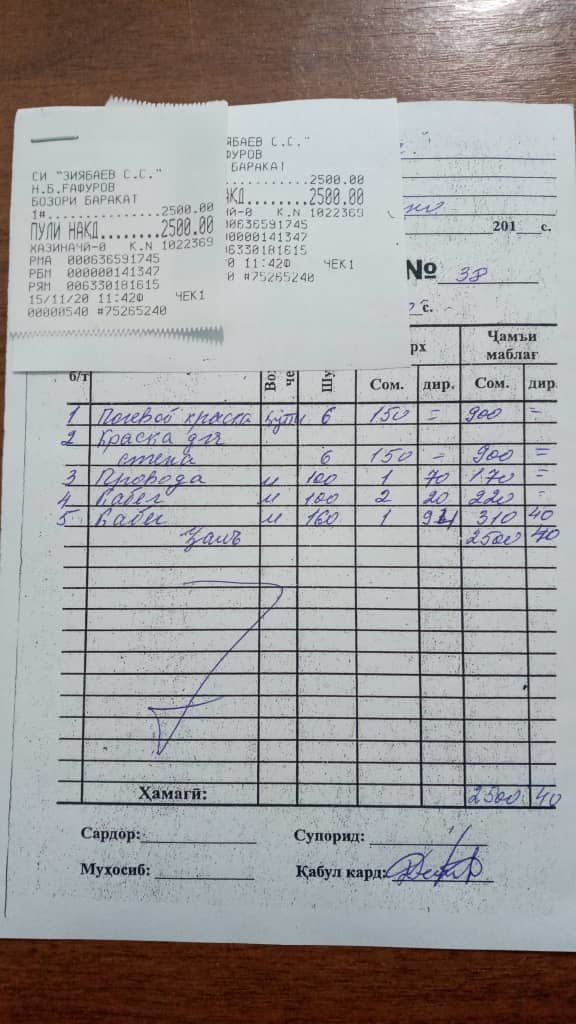 СИ "ЗИЯБАЕВ С.С."
Н.Б.ҒАФУРОВ
БОЗОРИ БАРАКАТ
1#...............2500.00
ПУЛИ НАКД........2500.00
ХАЗИНАЧӢ-0 К.N 1022369
РМА 000636591745
РБМ 000000141347
РЯМ 006330181615
15/11/20 11:42Ф ЧЕК1
00000540 #75265240
ЯБАЕВ С.С."
ФУРОВ
БАРАКАТ
............2500.00
КД........2500.00
ЧӢ-0 К.N 1022369
00636591745
0000141347
06330181615
0 11:42Ф ЧЕК1
0 #75265240
201 с.
№ 38
с.
б/т Во че Шу рх Ҷамъи маблағ
Сом. дир. Сом. дир.
1 Полевой краска қутӣ 6 150 = 900 =
2 Краска для
стена 6 150 - 900 =
3 м 100 1 70 170 =
4 Кабел м 100 2 20 220 -
5 Кабел м 160 1 94 310 40
Ҷамъ 2500 40
Ҳамагӣ: 2500 40
Сардор: Супорид:
Муҳосиб: Қабул кард: